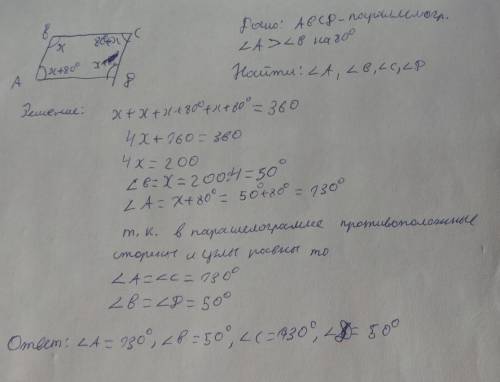 B
C
x
80°+x
x+80°
x
A
D
Дано: ABCD - параллелогр.
∠A > ∠B на 80°
Найти: ∠A, ∠B, ∠C, ∠D
Решение:
x + x + x + 80° + x + 80° = 360
4x + 160 = 360
4x = 200
∠B = x = 200:4 = 50°
∠A = x + 80° = 50° + 80° = 130°
т.к. в параллелограмме противоположные
стороны и углы равны то
∠A = ∠C = 130°
∠B = ∠D = 50°
Ответ: ∠A = 130°, ∠B = 50°, ∠C = 130°, ∠D = 50°